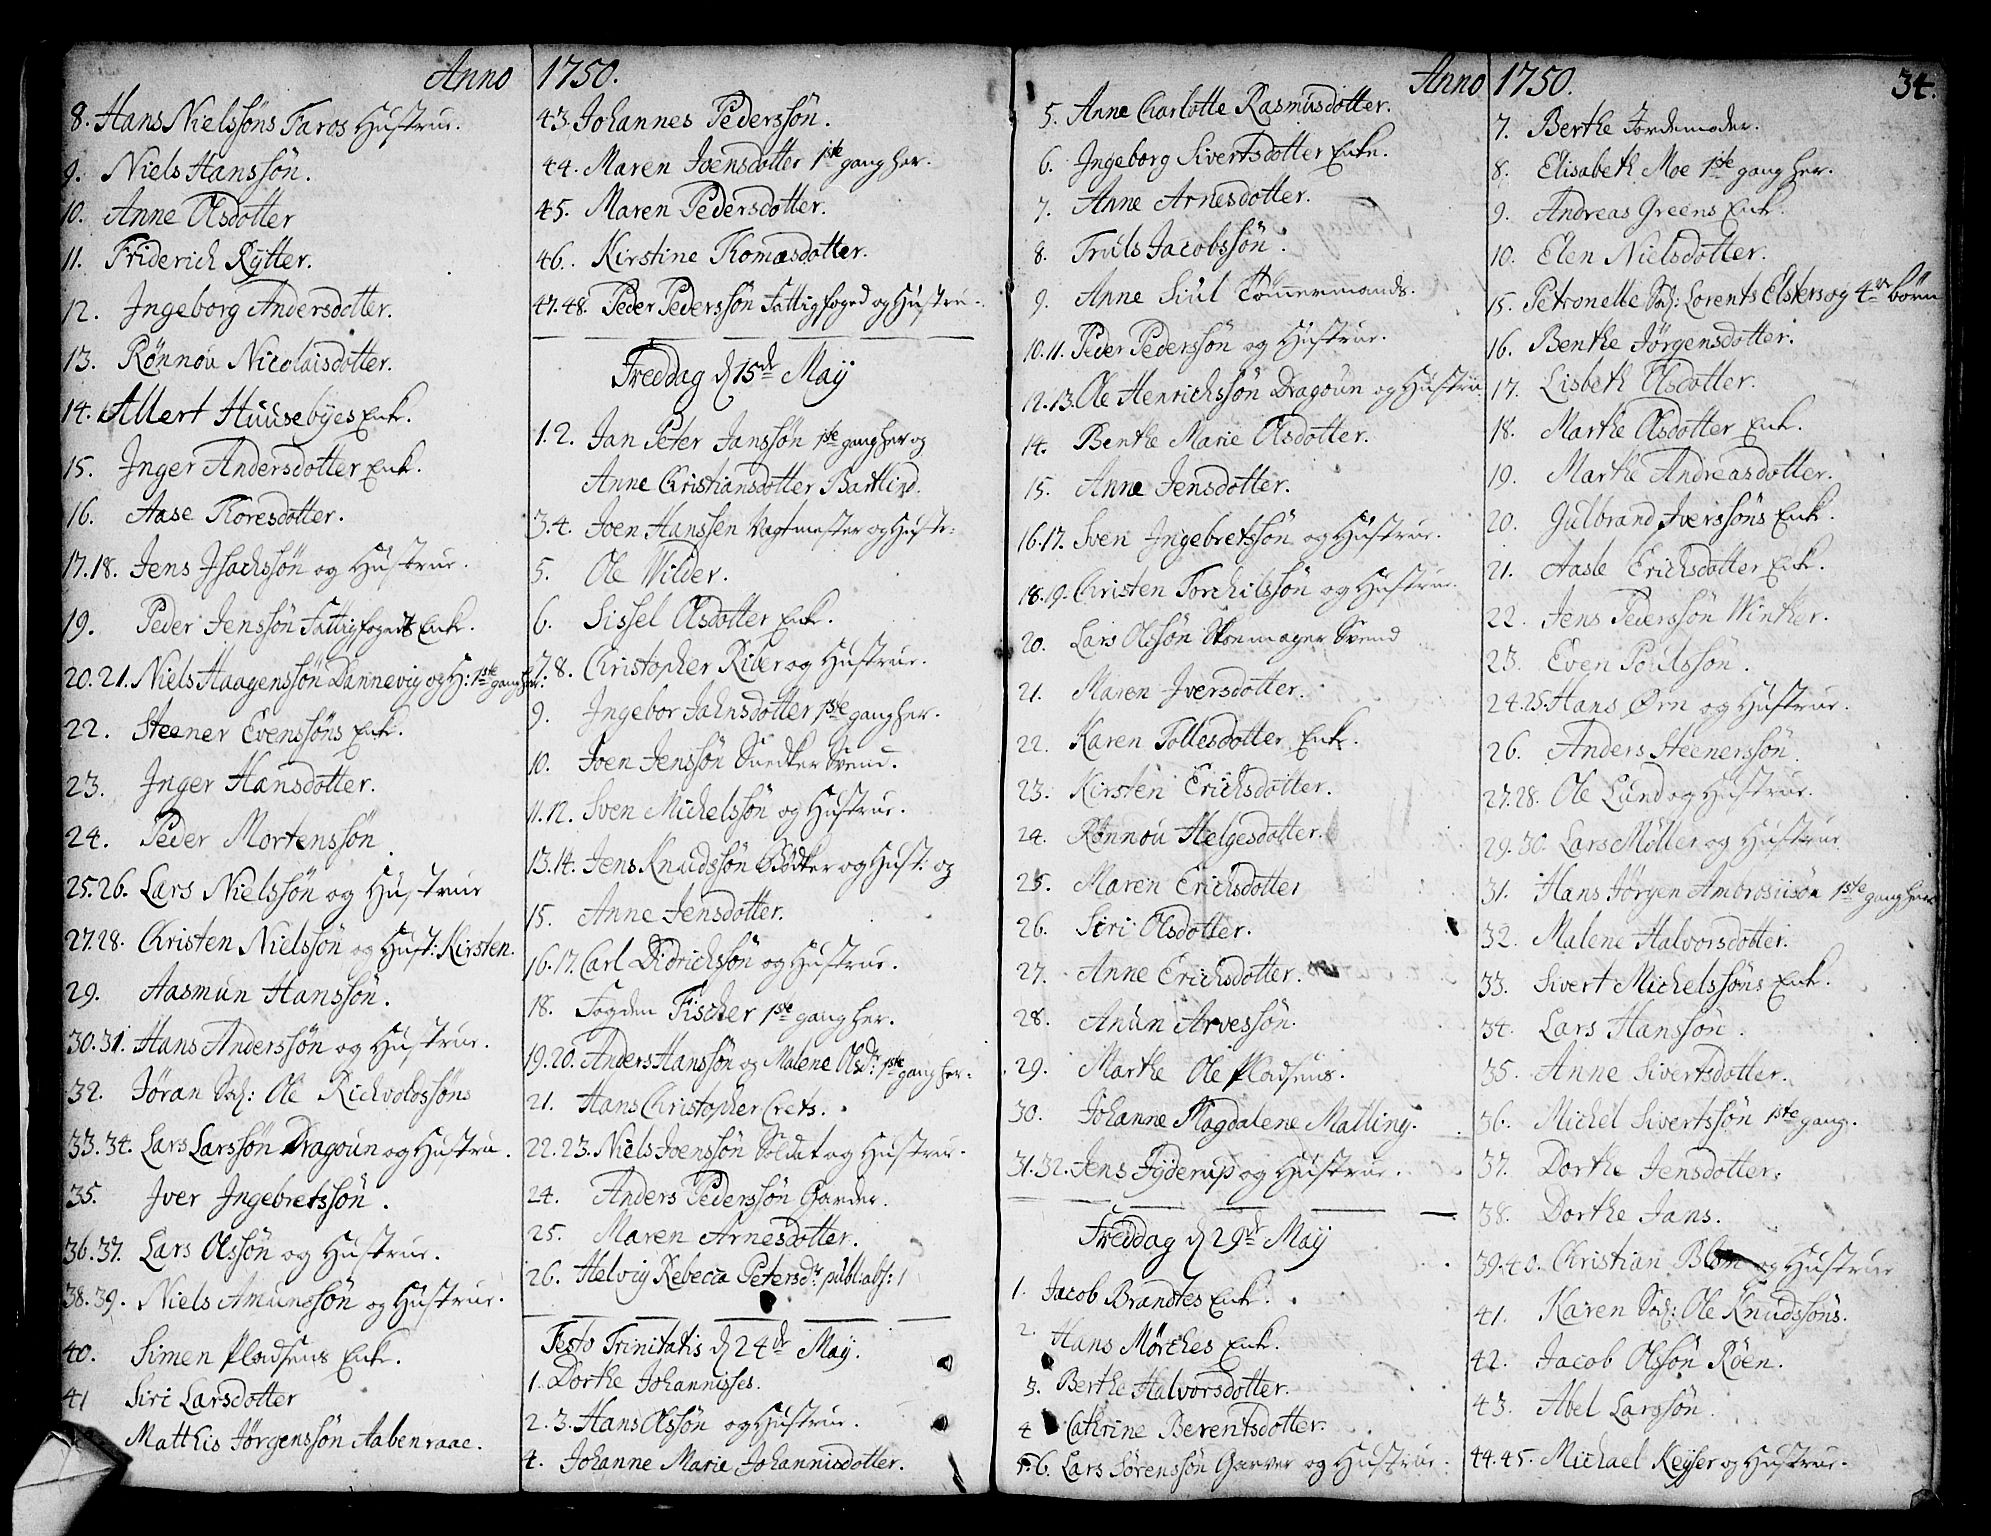 Anno 1750.
8. Hans Nielssöns Faros Hustrue.
9. Niels Hanssön.
10. Anne Olsdotter
11. Friderich Rytter.
12. Ingeborg Andersdotter.
13. Rönnou Nicolaisdotter.
14. Allert Huusebÿes Enk.
15. Inger Andersdotter Enk.
16. Aase Thoresdotter.
17.18. Jens Isachssön og Hustrue.
19. Peder Jenssön Fattigfogets Enk.
20.21. Niels Haagenssön Dannevig og H: 1ste gang her.
22. Steener Evenssöns Enk.
23. Inger Hansdotter.
24. Peder Mortenssön.
25.26. Lars Nielssön og Hustrue
27.28. Christen Nielssön og Hust: Kirsten.
29. Aasmun Hanssön.
30.31. Hans Anderssön og Hustrue.
32. Jöran Ole Richvoldssöns
33.34. Lars Larssön Dragoun og Hustru.
35. Iver Ingebretssön.
36.37. Lars Olssön og Hustrue.
38.39. Niels Amunssön og Hustrue.
40. Simen Pladsens Enk.
41 Siri Larsdotter
Matthis Jörgenssön Aabenraae.
43. Johannes Pederssön.
44. Maren Joensdotter 1ste gang her.
45. Maren Pedersdotter.
46. Kirstine Thomasdotter.
47.48. Peder Pederssön Fattigfoged og Hustrue.
Freddag d 15de Maÿ
1.2. Jan Peter Janssön 1ste gang her og
Anne Christiansdotter Bartlind.
3.4. Joen Hanssen Vagtmester og Hustr:
5. Ole Wilder.
6. Sissel Olsdotter Enk.
7.8. Christopher Riber og Hustrue.
9. Ingebor Jahnsdotter 1ste gang her.
10. Joen Jenssön Snedker Svend.
11.12. Sven Michelssön og Hustrue.
13.14. Jens Knudssön Bödker og Hust: og
15. Anne Jensdotter.
16.17. Carl Didrichssön og Hustrue.
18. Fogden Fischer 1ste gang her.
19.20. Anders Hanssön og Malene Olsdr: 1ste gang her.
21. Hans Christopher Crets.
22.23. Niels Joenssön Soldat og Hustrue.
24. Anders Pederssön Garder.
25. Maren Arnesdotter.
26. Helvig Rebecca Petersdr: publ: abs:
Festo Trinitatis d 24de Maÿ.
1. Dorthe Johannisses.
2.3. Hans Olssön og Hustrue.
4. Johanne Marie Johannisdotter.
Anno 1750. 34.
5. Anne Charlotte Rasmusdotter.
6. Ingeborg Sivertsdotter Enke.
7. Anne Arnesdotter.
8. Truls Jacobssön.
9. Anne Siul Tömmermands.
10.11. Peder Pederssön og Hustrue.
12.13. Ole Henrichssön Dragoun og Hustru.
14. Benthe Marie Olsdotter.
15. Anne Jensdotter.
16.17. Sven Ingebretssön og Hustrue.
18.19. Christen Torchilssön og Hustrue.
20. Lars Olssön Skoemager Svend
21. Maren Iversdotter.
22. Karen Tollesdotter Enk.
23. Kirsten Erichsdotter.
24. Rönnou Helgesdotter.
25. Maren Erichsdotter
26. Siri Olsdotter.
27. Anne Erichsdotter.
28. Anun Arvessön.
29. Marthe Ole Pladsens.
30. Johanne Magdalene Malling.
31.32. Jens Fÿderup og Hustrue.
Freddag d 29de Maÿ
1. Jacob Brandtes Enk.
2. Hans Mörthes Enk.
3. Berthe Halvorsdotter.
4 Cathrine Berentsdotter.
5.6. Lars Sörenssön Garver og Hustrue.
7. Berthe Jordemoder.
8. Elisabeth Moe 1ste gang her.
9. Andreas Greens Enk.
10. Elen Nielsdotter.
15. Petronelle Lorents Elsters og 4re börn
16. Benthe Jörgensdotter.
17. Lisbeth Olsdotter.
18. Marthe Olsdotter Enk.
19. Marthe Andreasdotter.
20. Gulbrand Iverssöns Enk.
21. Aasle Erichsdotter Enk.
22. Jens Pederssön Winther.
23. Even Poulssön.
24.25. Hans Ørn og Hustrue.
26. Anders Steenerssön.
27.28. Ole Lund og Hustrue.
29.30. Lars Möller og Hustrue
31. Hans Jörgen Ambrosiisön 1ste gang her
32. Malene Halvorsdotter.
33. Sivert Michelssöns Enk.
34. Lars Hanssön.
35. Anne Sivertsdotter.
36. Michel Sivertssön 1ste gang.
37. Dorthe Jensdotter.
38. Dorthe Jans.
39.40. Christian Blom og Hustrue
41. Karen Ole Knudssöns.
42. Jacob Olssön Röen.
43. Abel Larssön.
44.45. Michael Keÿser og Hustrue.